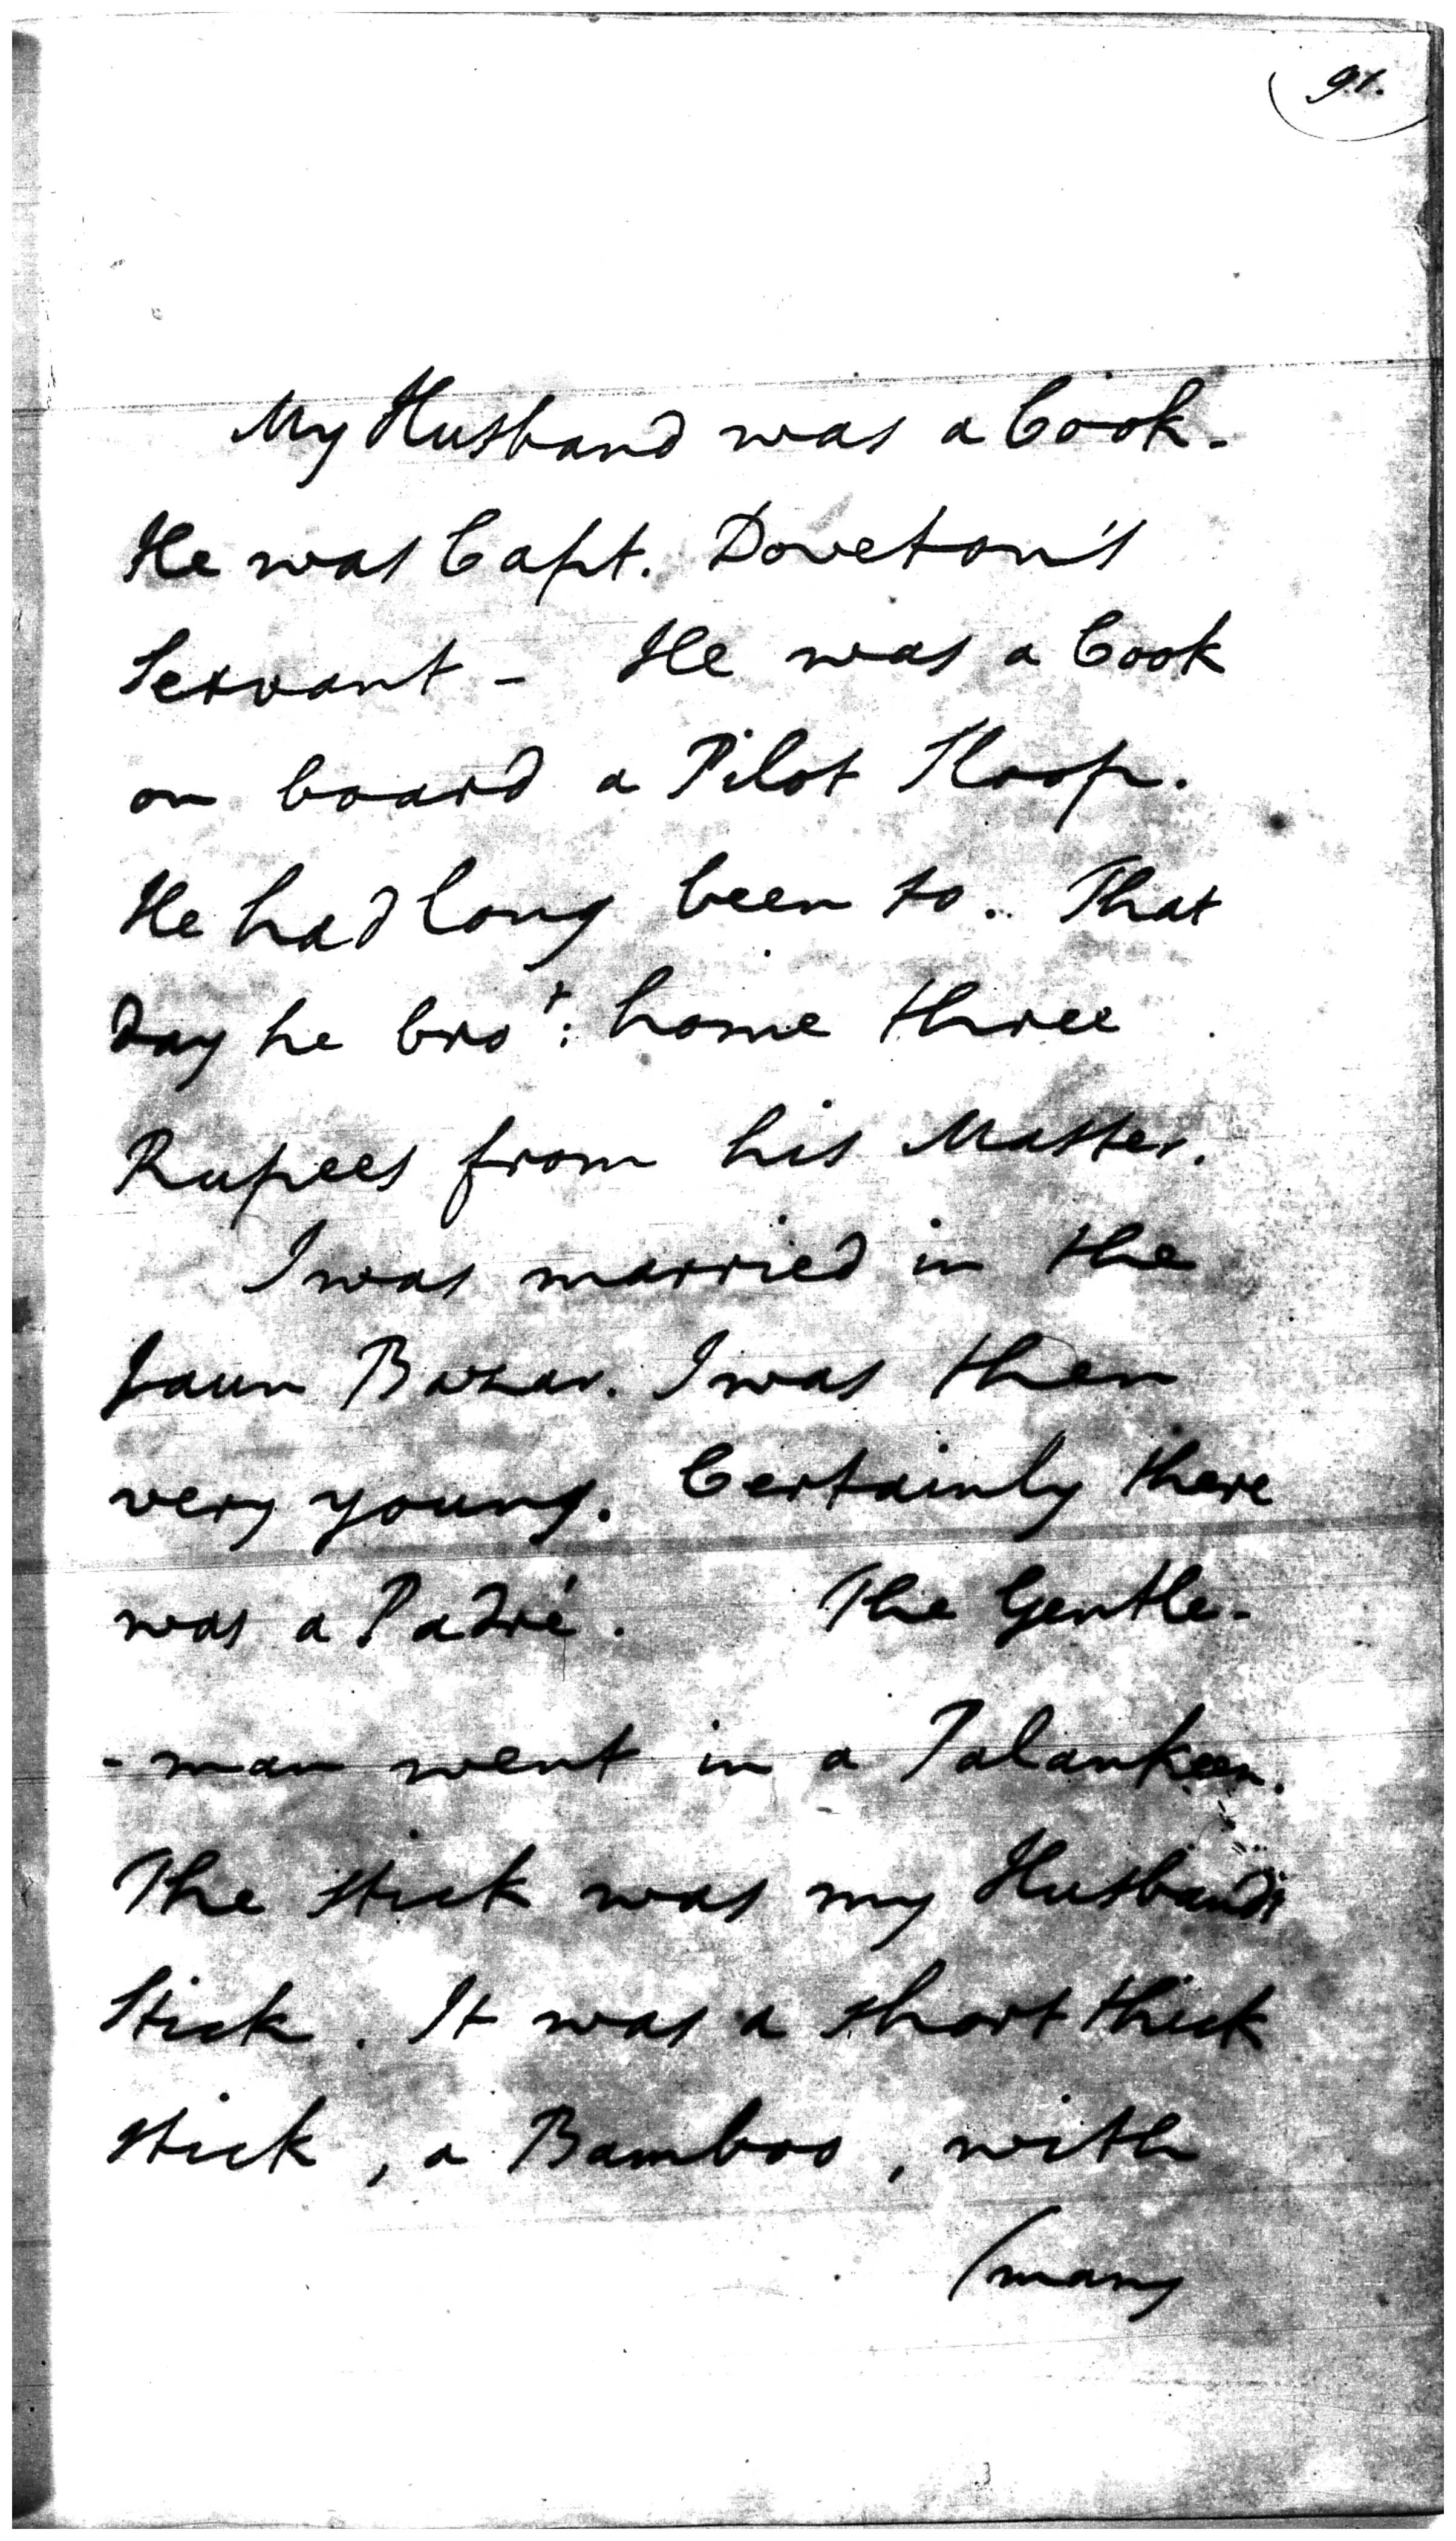 91.
My Husband was a Cook -
He was Capt. Doveton's
Servant - He was a Cook
on board a Pilot Sloop.
He had long been so. That
day he bro't: home three
Rupees from his Master.
I was married in the
Jaun Bazar. I was then
very young. Certainly there
was a Padré. The Gentle-
-man went in a Palankeen.
The stick was my Husbands
Stick. It was a short thick
stick, a Bamboo, with
(many